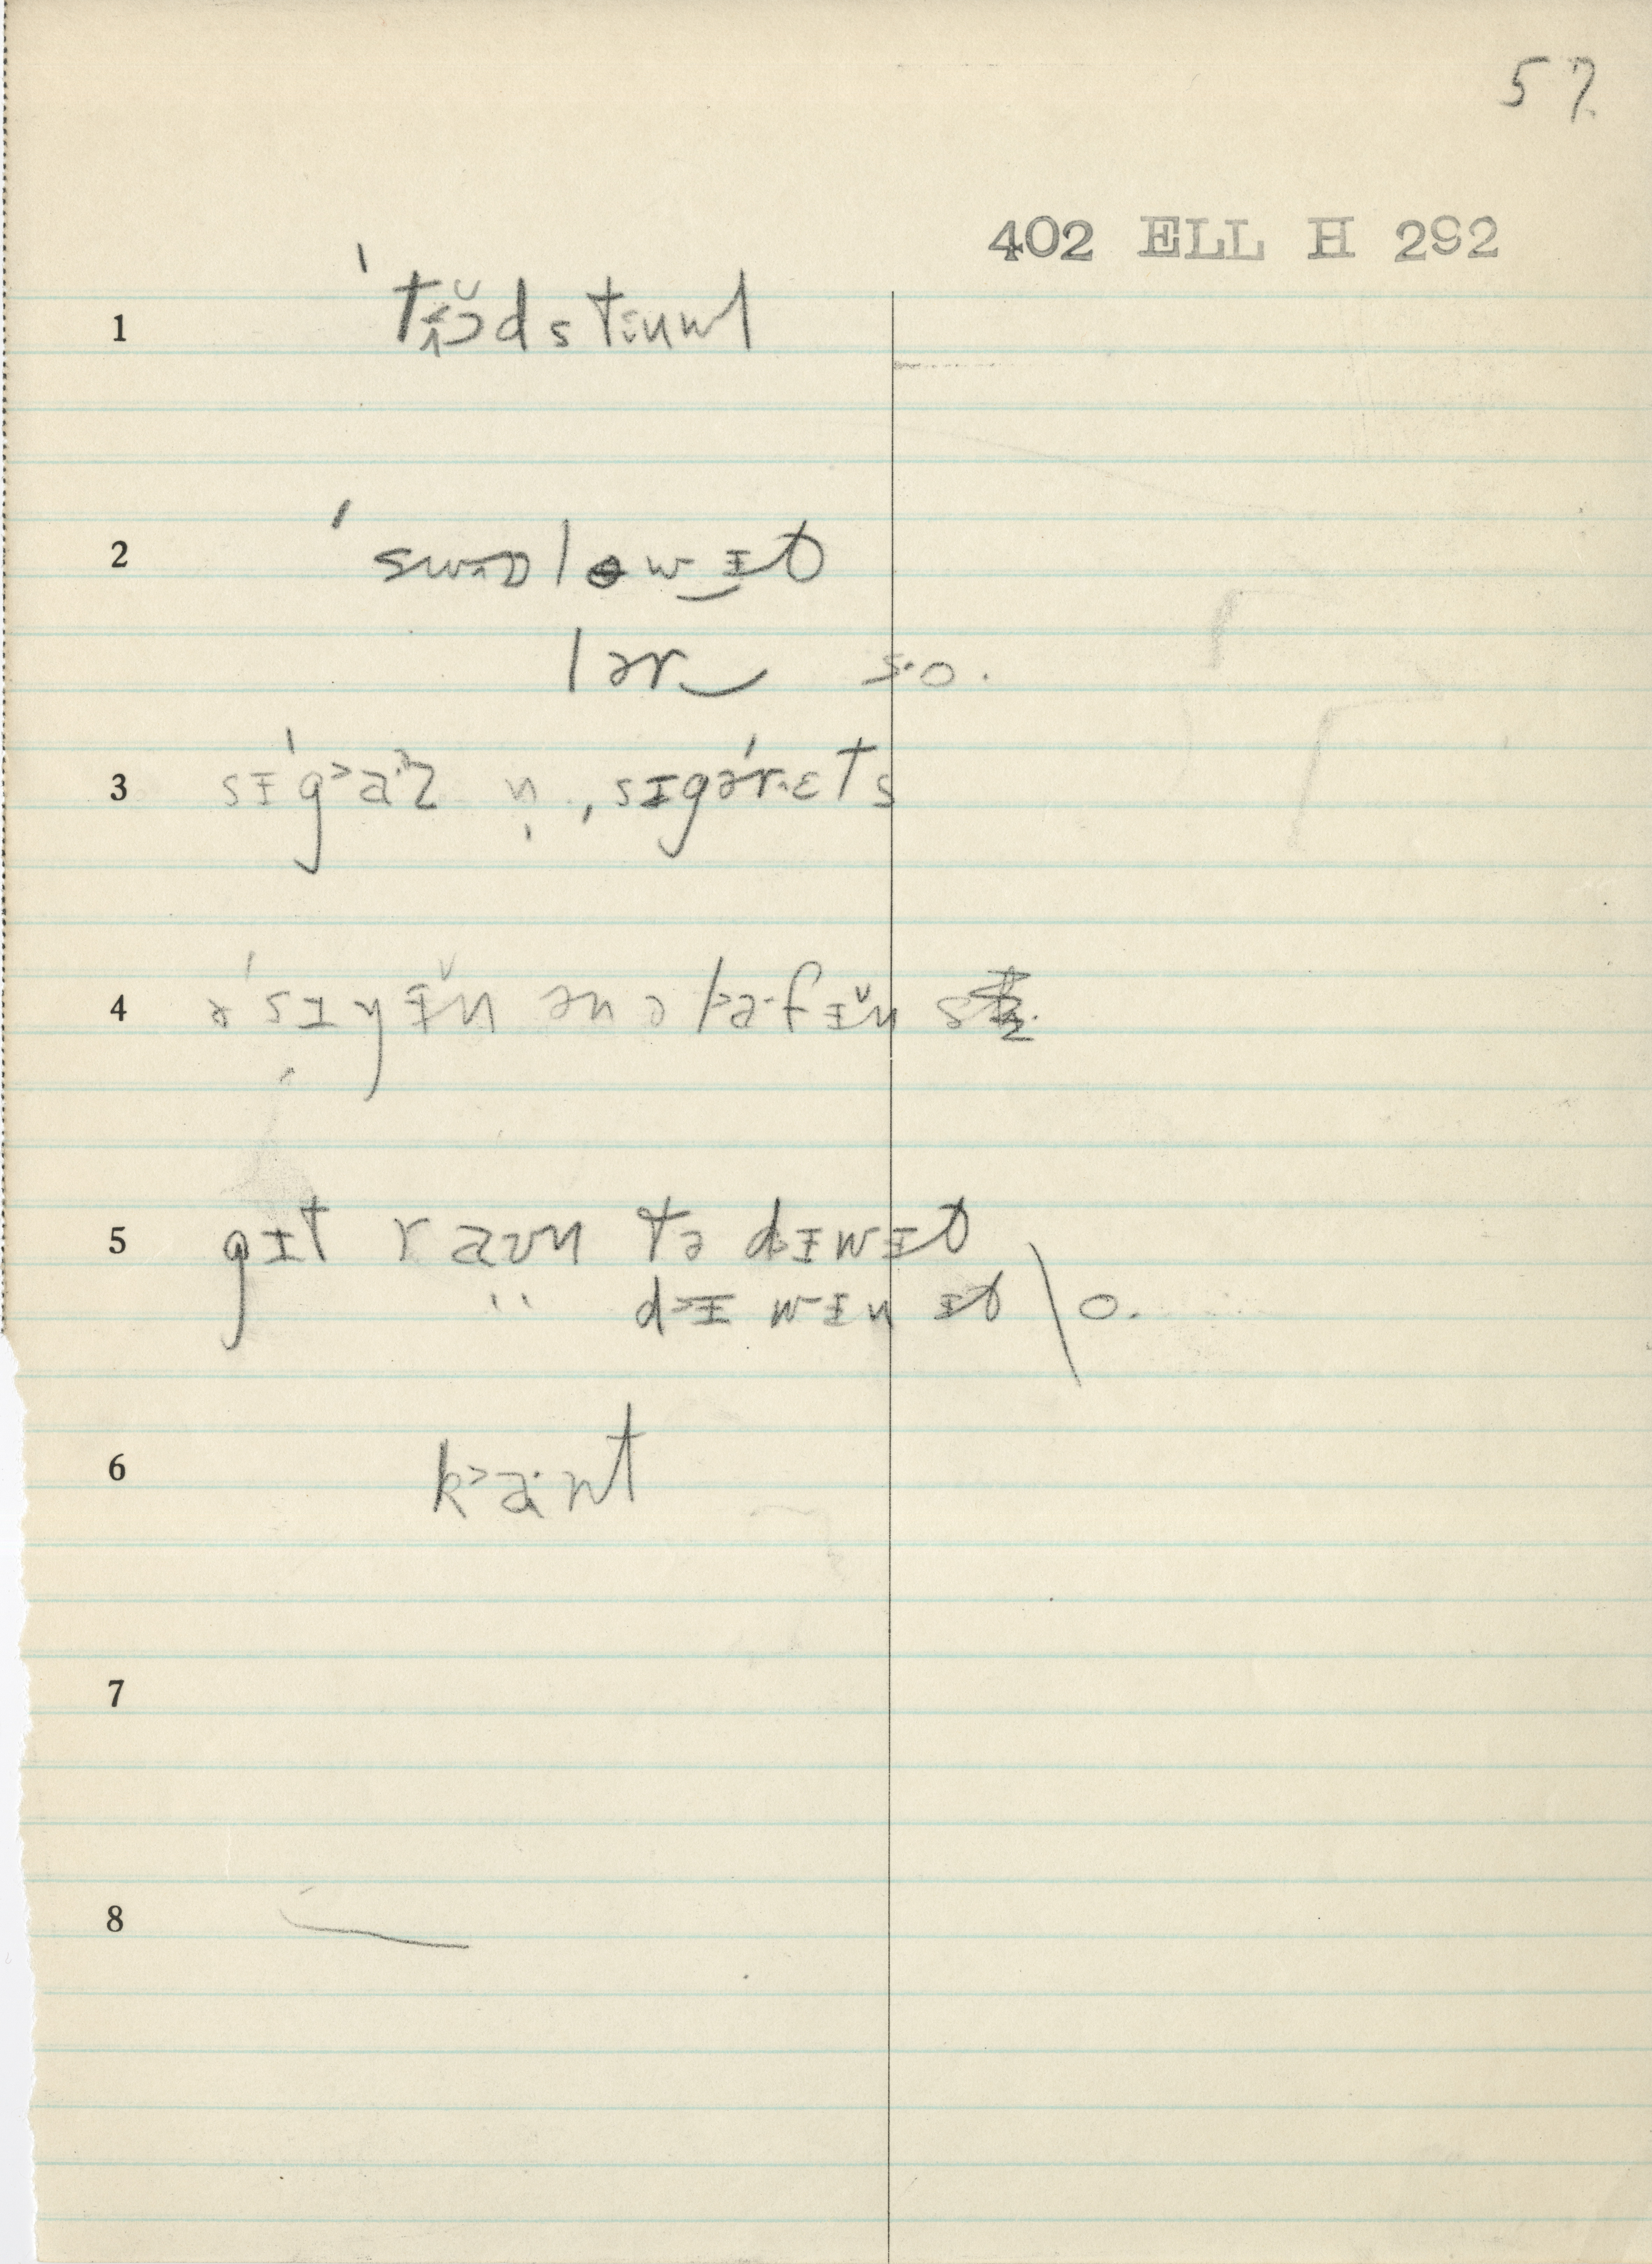 57
402 ELL H 292
1 ˈtɨɔ̆dstɨuwl
2 ˈswɒləwɪt
lər‿ s·o.
3 sɪˈg˃a·ɚz n̩ ˌsɪgəˈr·ɛts
4 əˈsɪyɪ̆n ən ə pa·fɪ̆n
5 gɪt raʊn tə dɪwɪt
" d˃ɪ wɪn ɪt \ o.
6 k˃a·nt
7
8